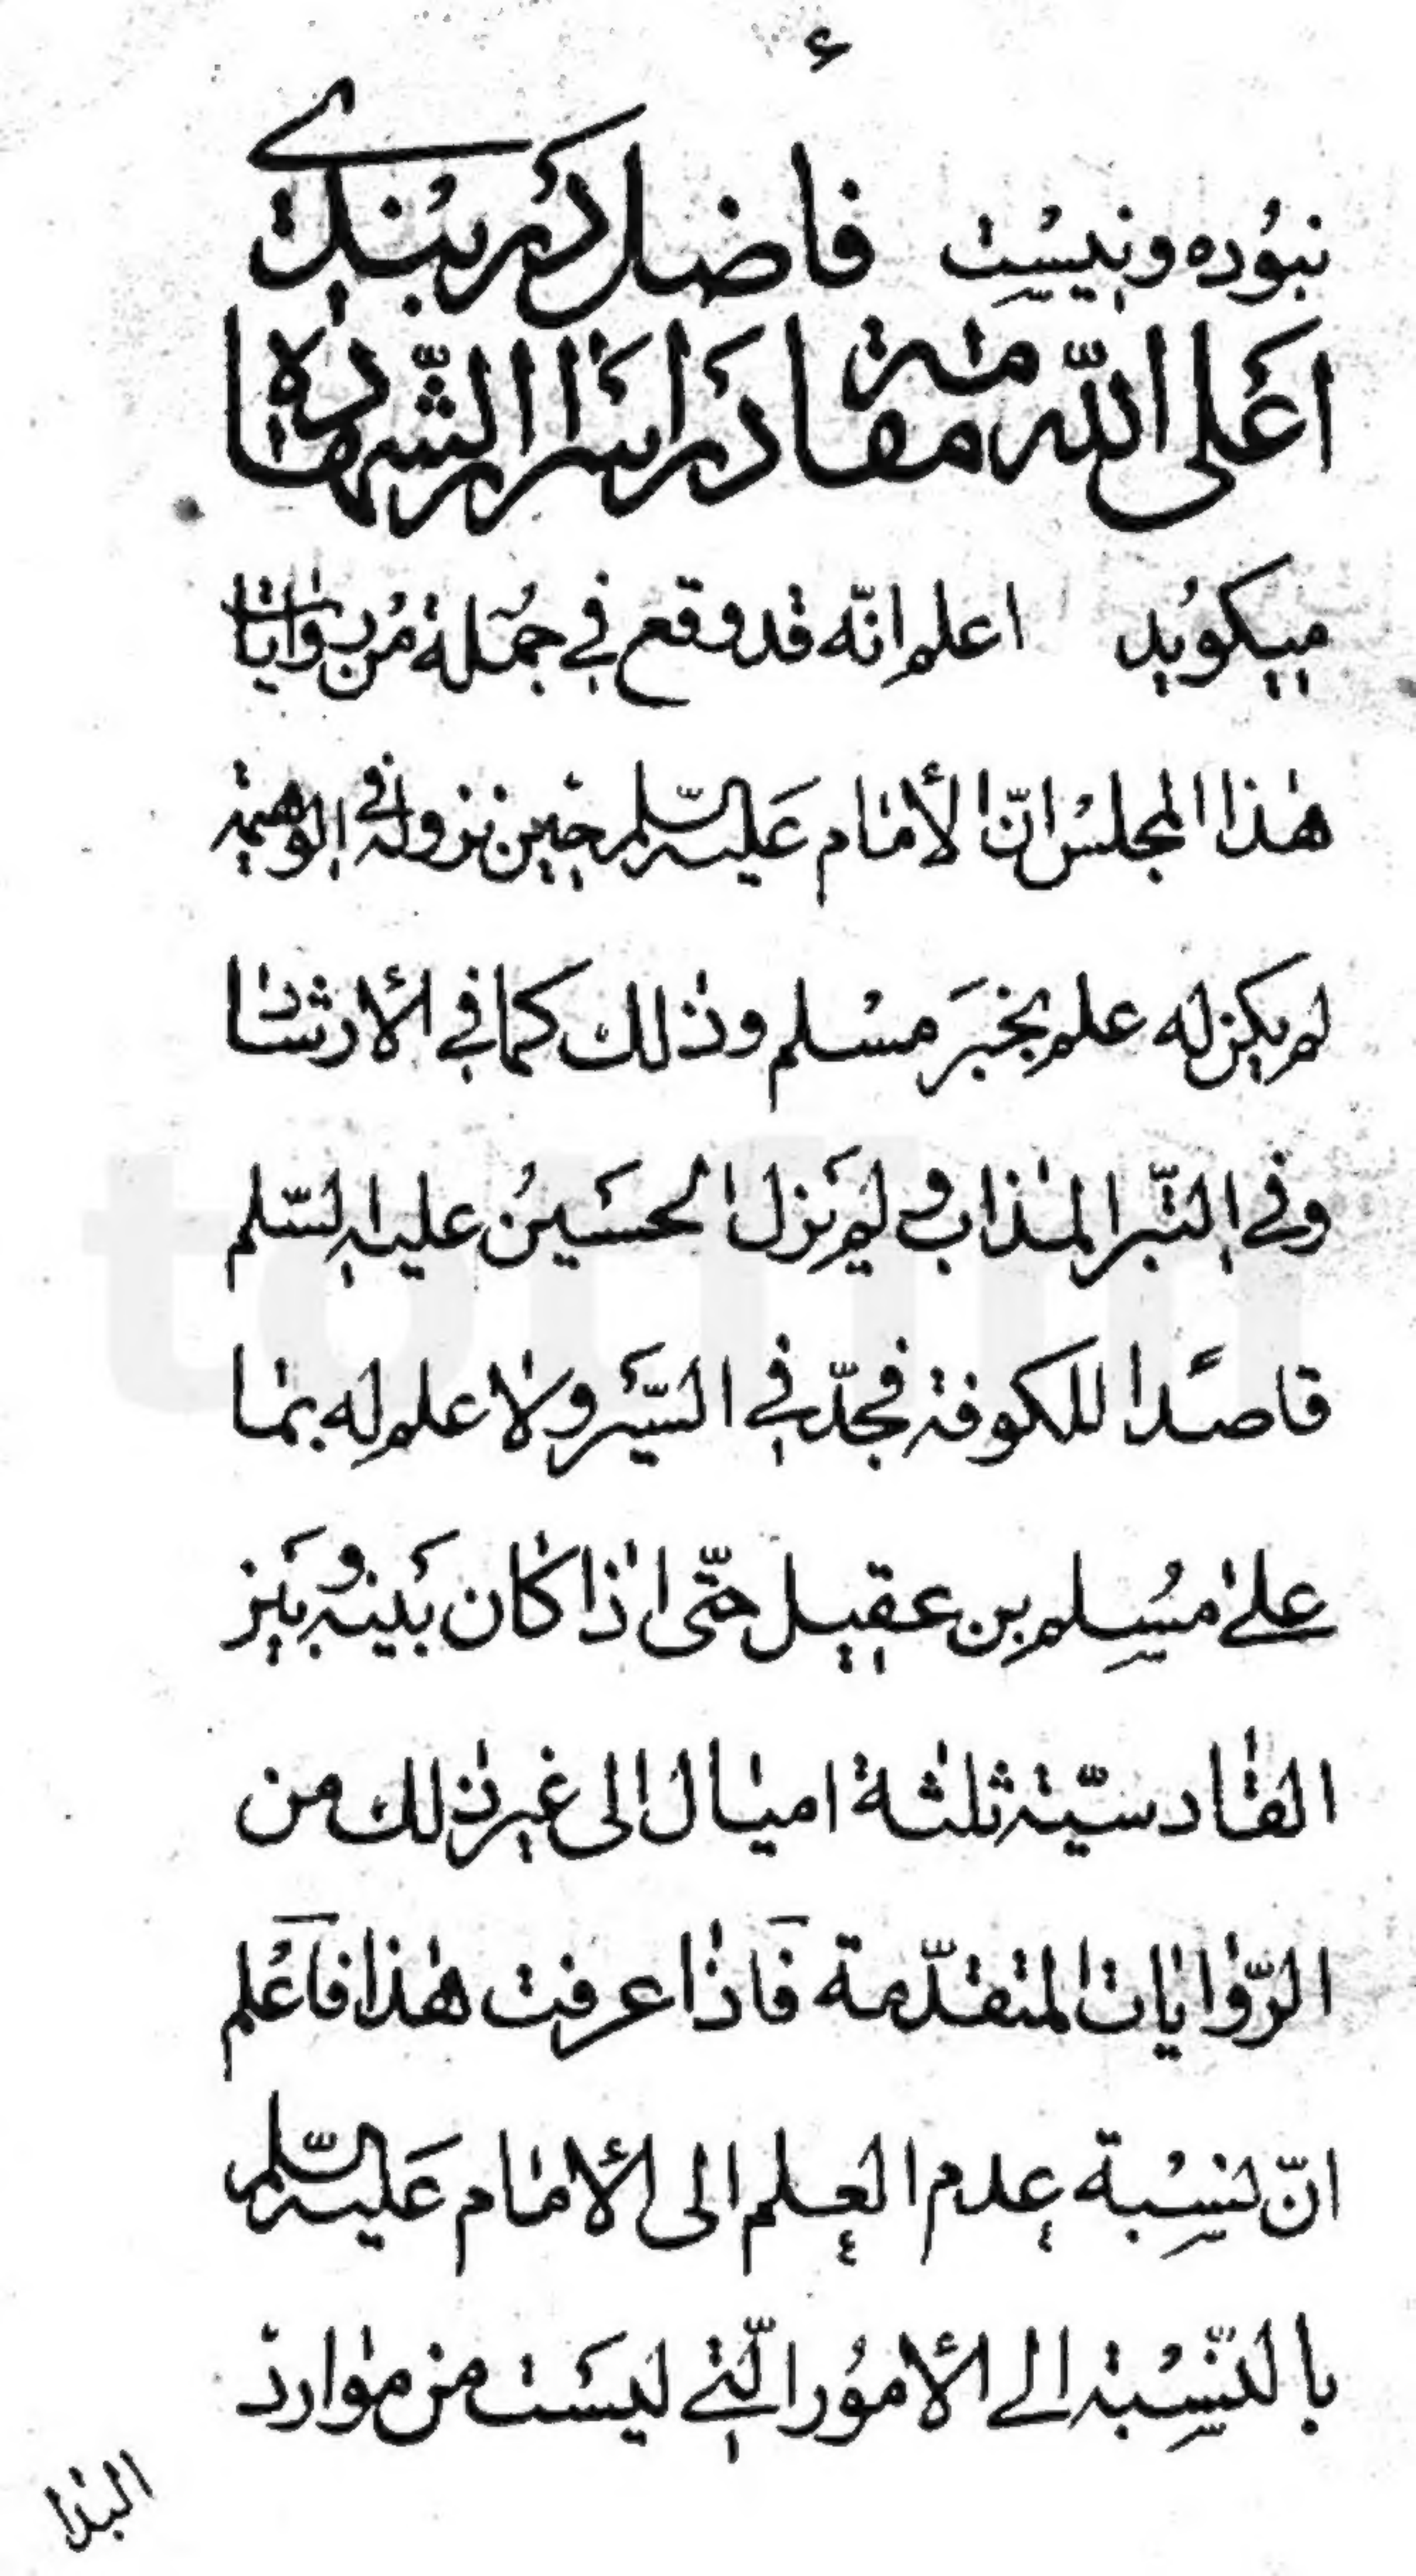 ء
نبوده و نیست فاضل دربندی
اعلی الله مقامه در اسرار الشهاده
میکوید اعلم انّه قد وقع فی جملة من روایات
هذا المجلس انّ الأمام علیه السّلم حین نزوله فی الوهیمة
لم یکن له علم بخبر مسلم وذلك كما فی الأرشاد
وفی التّبر المذاب و لم نزل الحسین علیه السّلم
قاصدًا للکوفة فجدّ فی السّیر ولا علم له بما
علی مسلم بن عقیل حتّی اذا کان بینه و بین
القادسیّة ثلثة امیال الی غیر ذلك من
الرّوایات المتقدّمة فاذا عرفت هذا فاعلم
انّ نسبة عدم العلم الی الأمام علیه السّلم
بالنّسبة الی الأمور الّتی لیست من موارد
البدا